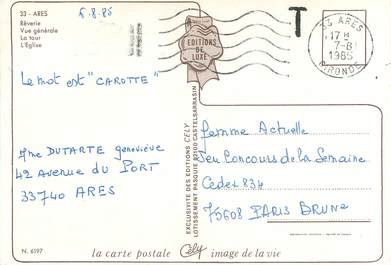 33 - ARES
Rêverie
Vue générale
La tour
L'Eglise
5.8.85
EDITIONS
DE
LUXE
T
33 ARES
17 H
7-8
1985
GIRONDE
Le mot est "CAROTTE"
Mme DUTARTE geneviève
42 Avenue du PORT
33740 ARES
EXCLUSIVITE DES EDITIONS CELY
LOTISSEMENT PASQUIE 82100 CASTELSARRASIN
femme Actuelle
Jeu Concours de la Semaine
Cedex 834
75608 PARIS BRUNE
N. 6197
la carte postale Cely image de la vie